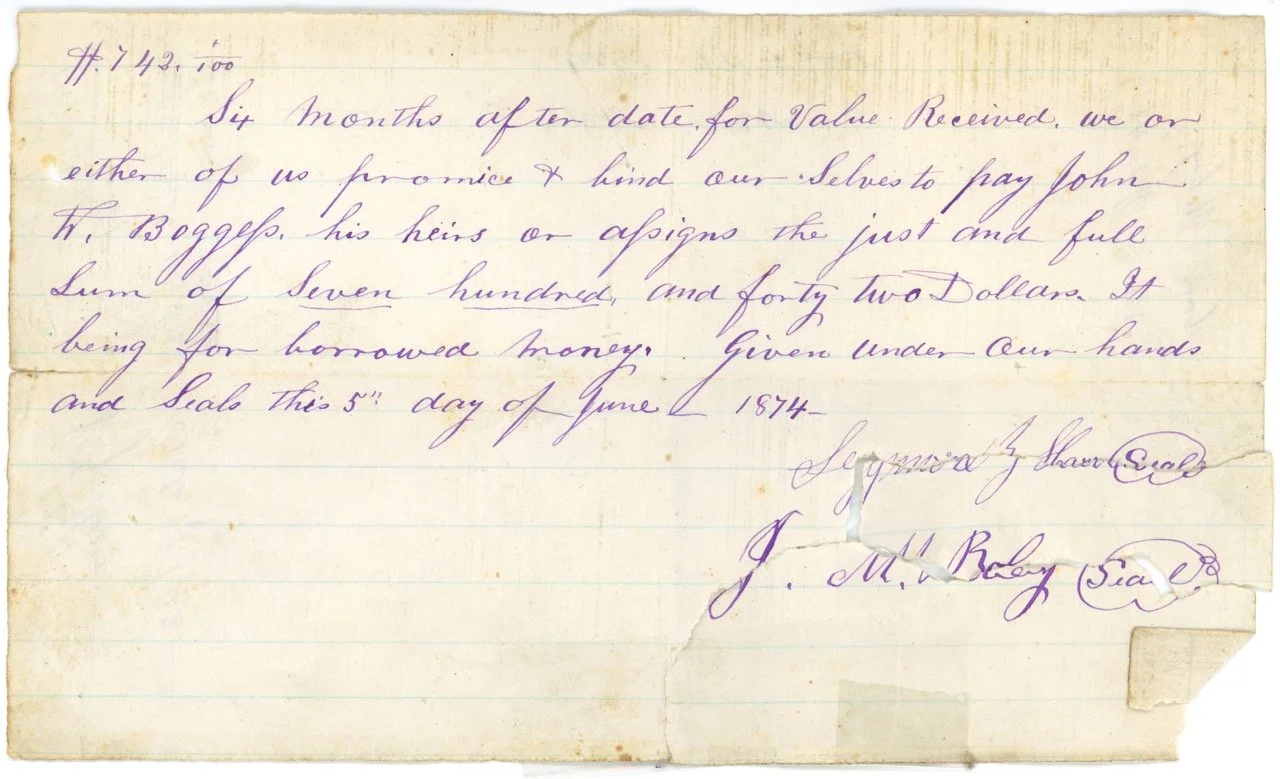 $.742. /100
Six Months after date, for Value Received. we or
either of us promice & bind our Selves to pay John
W. Boggess. his heirs or assigns the just and full
Sum of Seven hundred, and forty two Dollars. It
being for borrowed Money. Given under Our hands
and Seals this 5" day of June 1874
Seymore Shaw Seal
J. M. Raley Seal